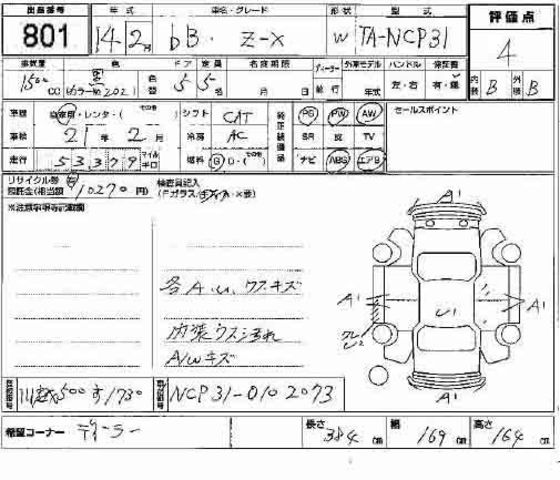 出品番号 年式 車名・グレード 形状 型式 評価点
801 14 2月 bB・Z-X W TA-NCP31 4
排気量 色 ドア 定員 名変期限 ディーラー 外車モデル ハンドル 保証書 内装 外装
1500 CC (カラーNo.202) 色替 5 5 月 日 並行 年式 左・右 有・無 B B
車歴 自家用・レンタ・( その他 ) シフト CAT 純正装備品 PS PW AW セールスポイント
車検 21年2月 冷房 AC SR 革 TV
走行 53379 マイル キロ 燃料 G D・( その他 ) ナビ ABS エアB
リサイクル券 有
預託金(相当額 10270 円) 検査員記入
※注意事項等記載欄
A1
各A.U.ウスキズ
A1 U1 A1
内装ウス汚れ
A/Wキズ
A1
登録番号 川越500す1730 車台番号 NCP31-0102073
希望コーナー ディーラー 長さ 384 cm 幅 169 cm 高さ 164 cm